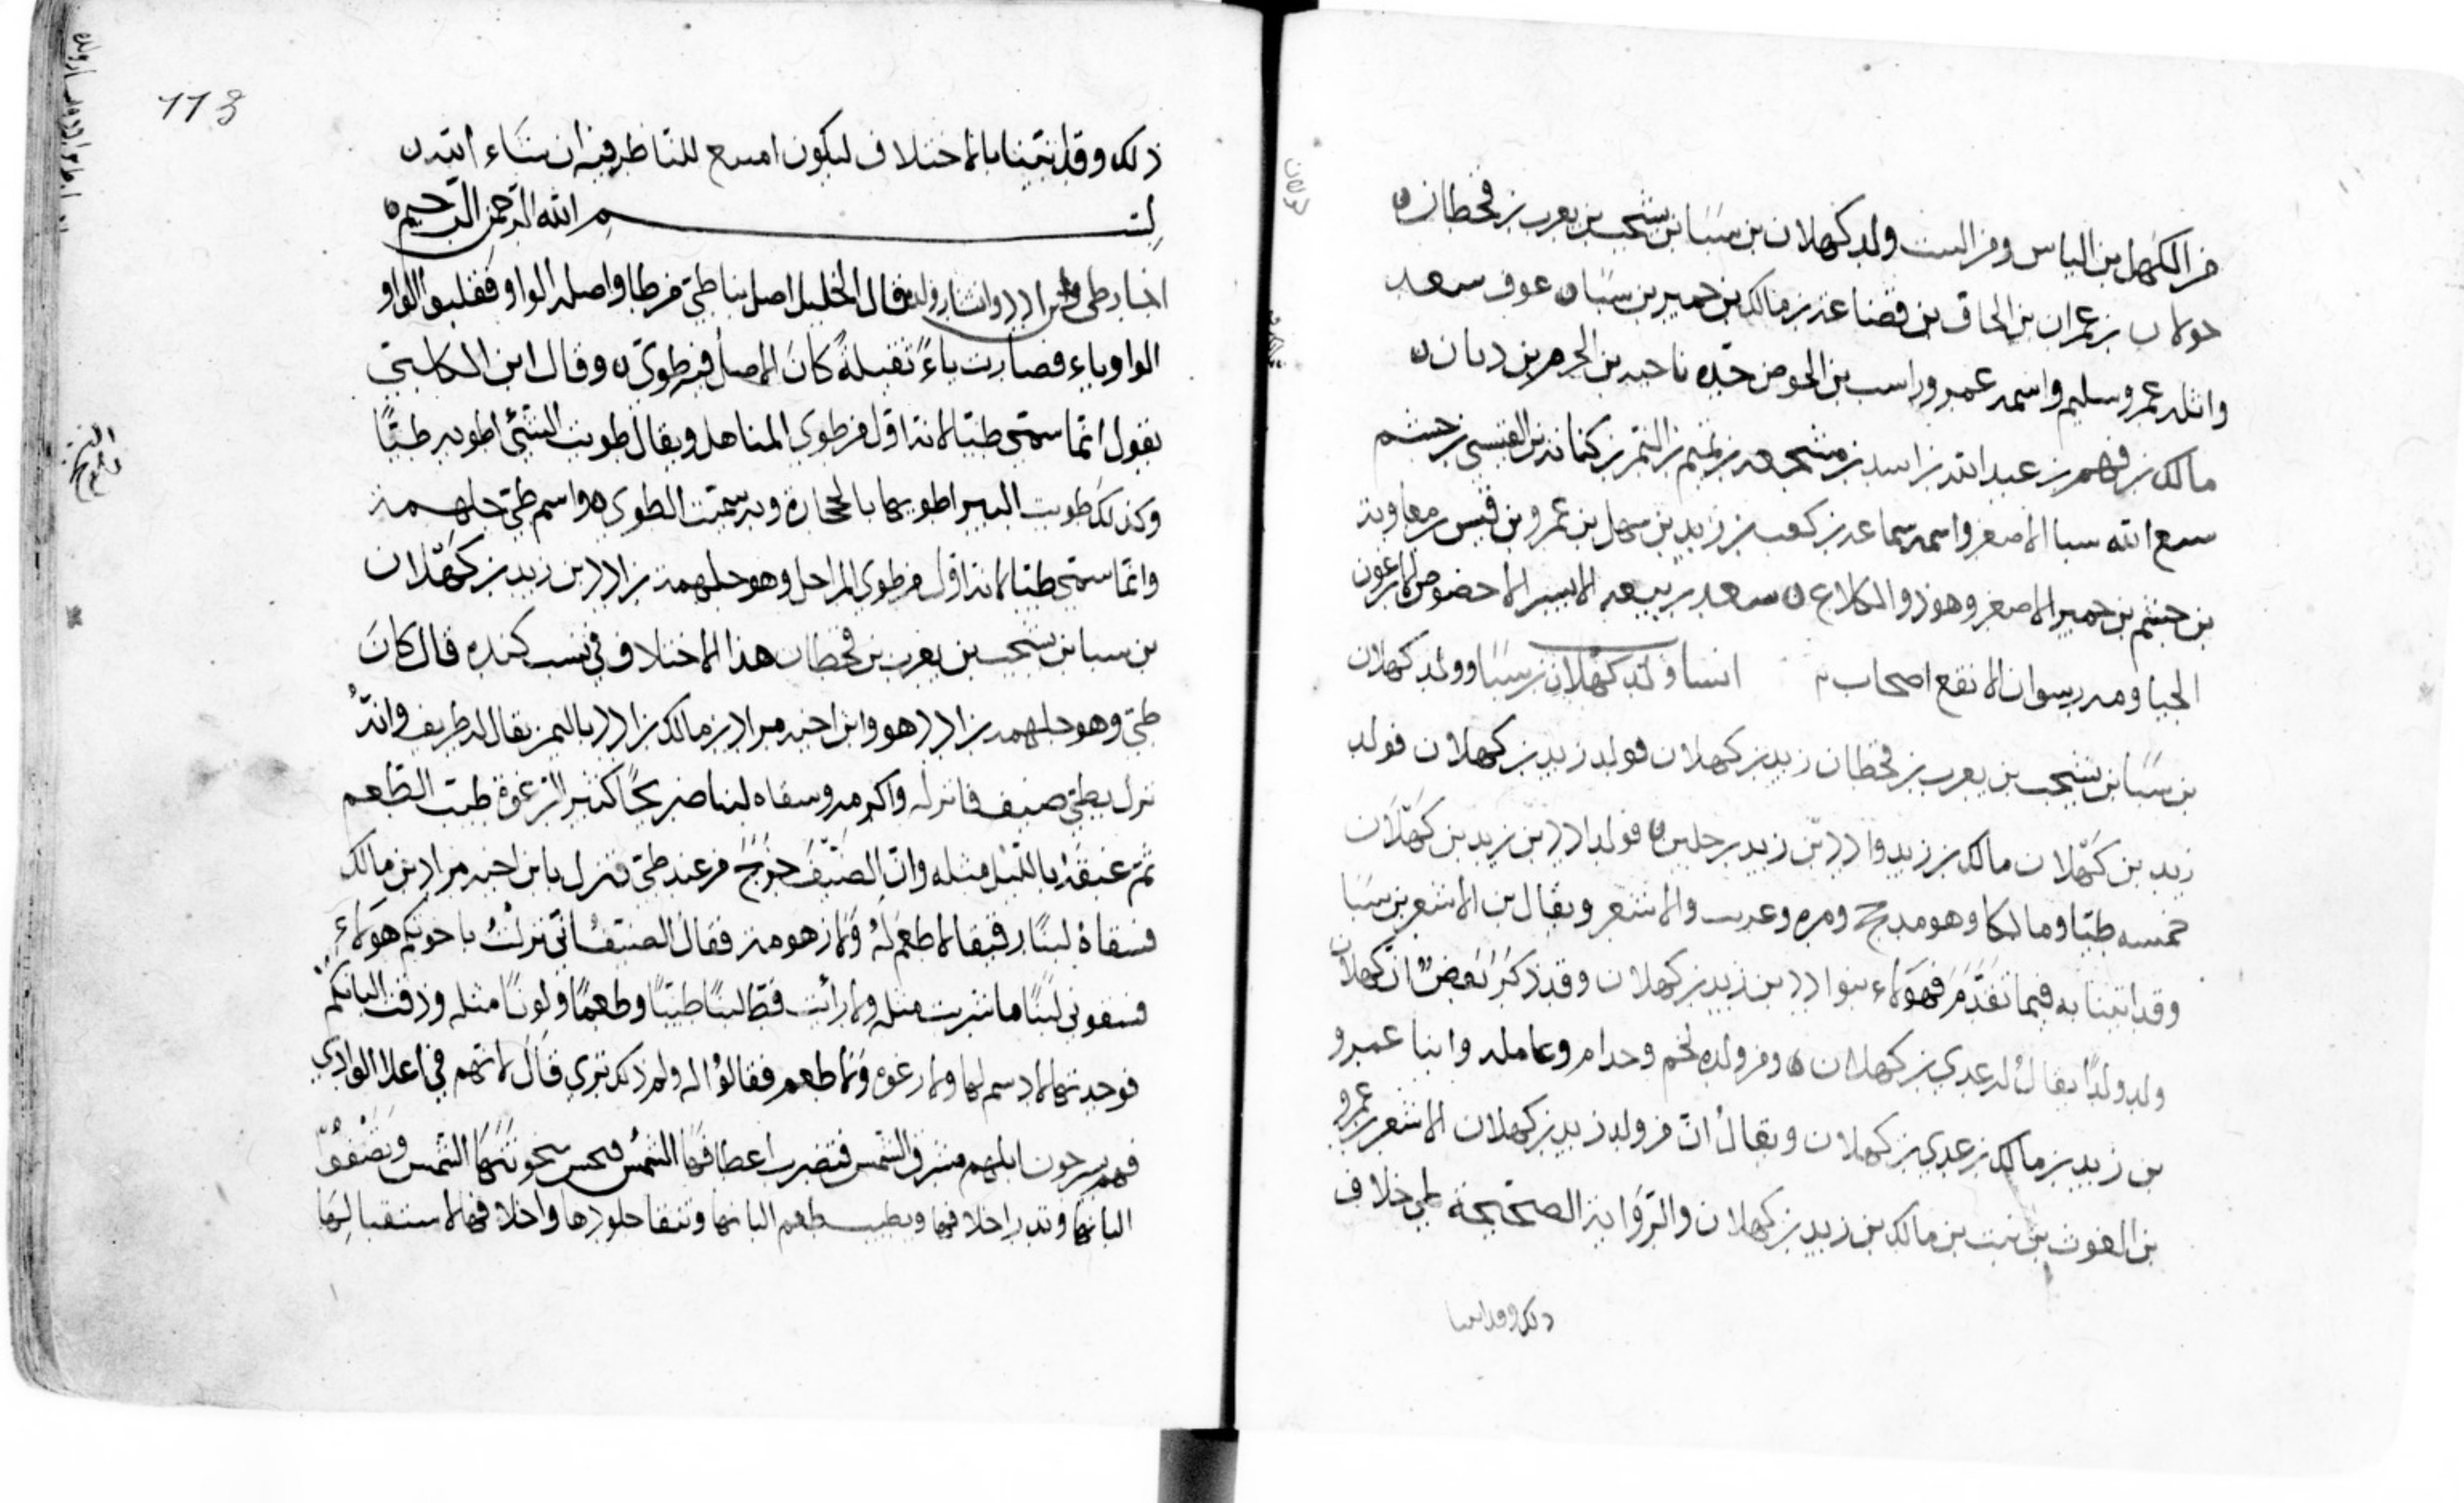 من الكهل بن الياس ومن الست ولد كهلان بن سبا بن يشجب بن يعرب بن قحطان
خولان بن عمران بن الحاف بن قضاعة بن مالك بن حمير بن سبا عوف سعد
واثله عمرو سليم واسمه عمرو وراسب بن الخوص جده ناجيه بن الجرم بن ربان
مالك بن فهم بن عبد الله بن اسد بن مشجعه بن تميم بن النمر بن كنانه بن القيسي بن جشم
سمع الله سبا الاصغر واسمه سماعه بن كعب بن زيد بن سهل بن عمرو بن قيس بن معاوية
بن جشم بن حمير الاصغر وهو ذو الكلاع سعد بن ربيعه الايسر الاحضوص الارعون
الانقع اصحاب انساب ولد كهلان بن سبا وولد كهلان
بن سبا بن يشجب بن يعرب بن قحطان زيد بن كهلان فولد زيد بن كهلان فولد
زيد بن كهلان مالك بن زيد وادد بن زيد رجلين فولد ادد بن زيد بن كهلان
خمسه طيا ومالكا وهو مدحج ومره وعريب والاشعر ويقال بن الاشعر بن سبا
وقد اتينا به فيما تقدم فهولاء بنو ادد بن زيد بن كهلان وقد ذكر بعض ان كهلان
ولد ولدا يقال له عدي بن كهلان ومن ولده لخم وجدام وعامله وابنا عمرو
بن زيد بن مالك بن عدي بن كهلان ويقال ان من ولد زيد بن كهلان الاشعر بن عمرو
بن الغوث بن نبت بن مالك بن زيد بن كهلان والرواية الصحيحة على خلاف
ذلك وقد اتينا
113
ذلك وقد اتينا بالاختلاف ليكون امسع للناظر فيه ان شاء الله
بسم الله الرحمن الرحيم
اخبار طي بن ادد وانساب ولده قال الخليل اصل بنا طي من طا واصله الواو فقلبو الواو
الواو ياء فصارت ياءً ثقيلةً كان الاصل فيه طوي وقال ابن الكلبي
يقول انما سمي طيا لانه اول من طوي المناهل ويقال طويت الشئ اطويه طيًا
وكذلك طويت البير اطويها بالحجارة وبه سميت الطوي واسم طي جلهمة
وانما سمي طيا لانه اول من طوي المراحل وهو جلهمة بن ادد بن زيد بن كهلان
بن سبا بن يشجب بن يعرب بن قحطان هذا الاختلاف في نسب كنده قال كان
طي وهو جلهمه بن ادد هو وابن اخيه مراد بن مالك بن ادد باليمن يقال له طريف وانه
نزل بطي ضيف فانزله واكرمه وسقاه لبنا صريحًا كثير الرغوة طيب الطعم
ثم غبقه بالليل مثله وان الضيف خرج من عند طي فنزل بابن اخيه مراد بن مالك
فسقاه لبنًا رقيقا لا طعم له ولا زهومة فقال الضيف اني نزلت باخوتكم هولاء
فسقوني لبنًا ما شربت مثله ولا رأيت قط لبنًا طيبًا وطعمًا ولونًا مثله وذقت البانكم
فوجدتها لا دسم لها ولا رغوه ولا طعم فقالوا له ولم ذلك تري قال لانهم في اعلا الوادي
فهم يسرحون ابلهم مشرق الشمس فتضرب اعطافها الشمس سخونتها الشمس
البانها وتدر اخلافها ويطيب طعم البانها وتنقا جلودها واخلافها لاستقبالها